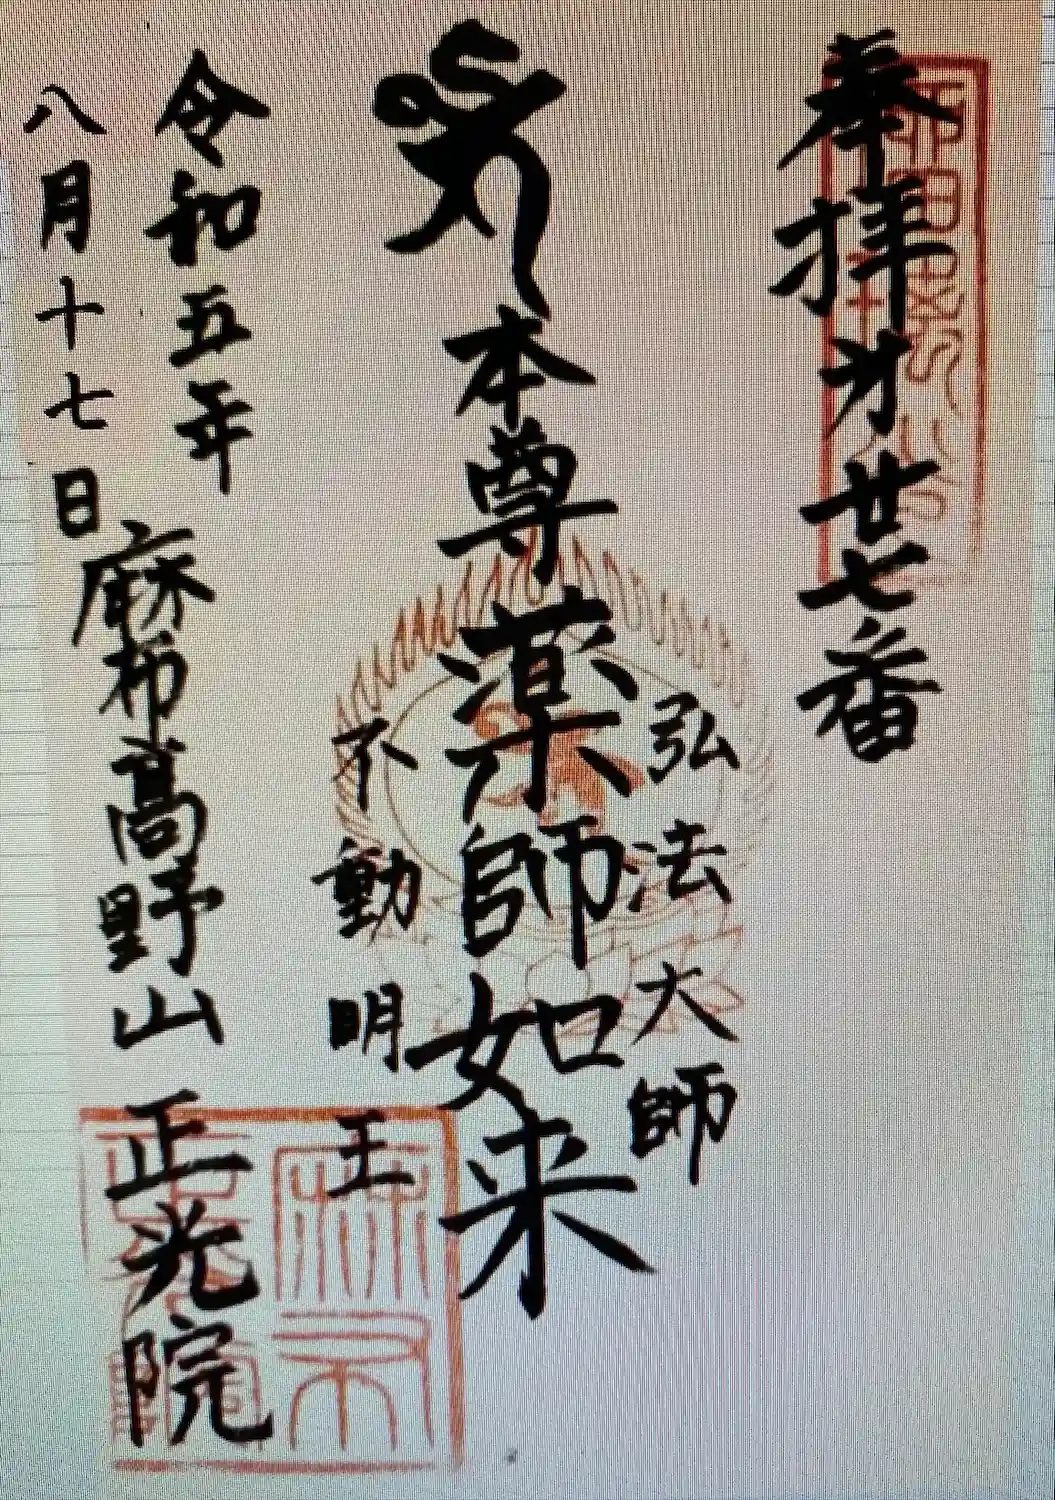 奉拝才廿七番
弘法大師
本尊薬師如来
不動明王
令和五年
八月十七日
麻布高野山
正光院